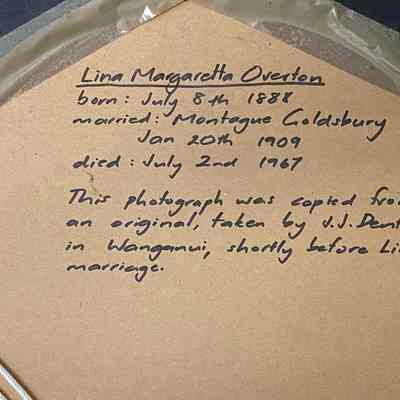 Lina Margaretta Overton
born: July 8th 1888
married: Montague Goldsbury
Jan 20th 1909
died: July 2nd 1967
This photograph was copied
an original, taken by J.J.
in Wanganui, shortly before
marriage.